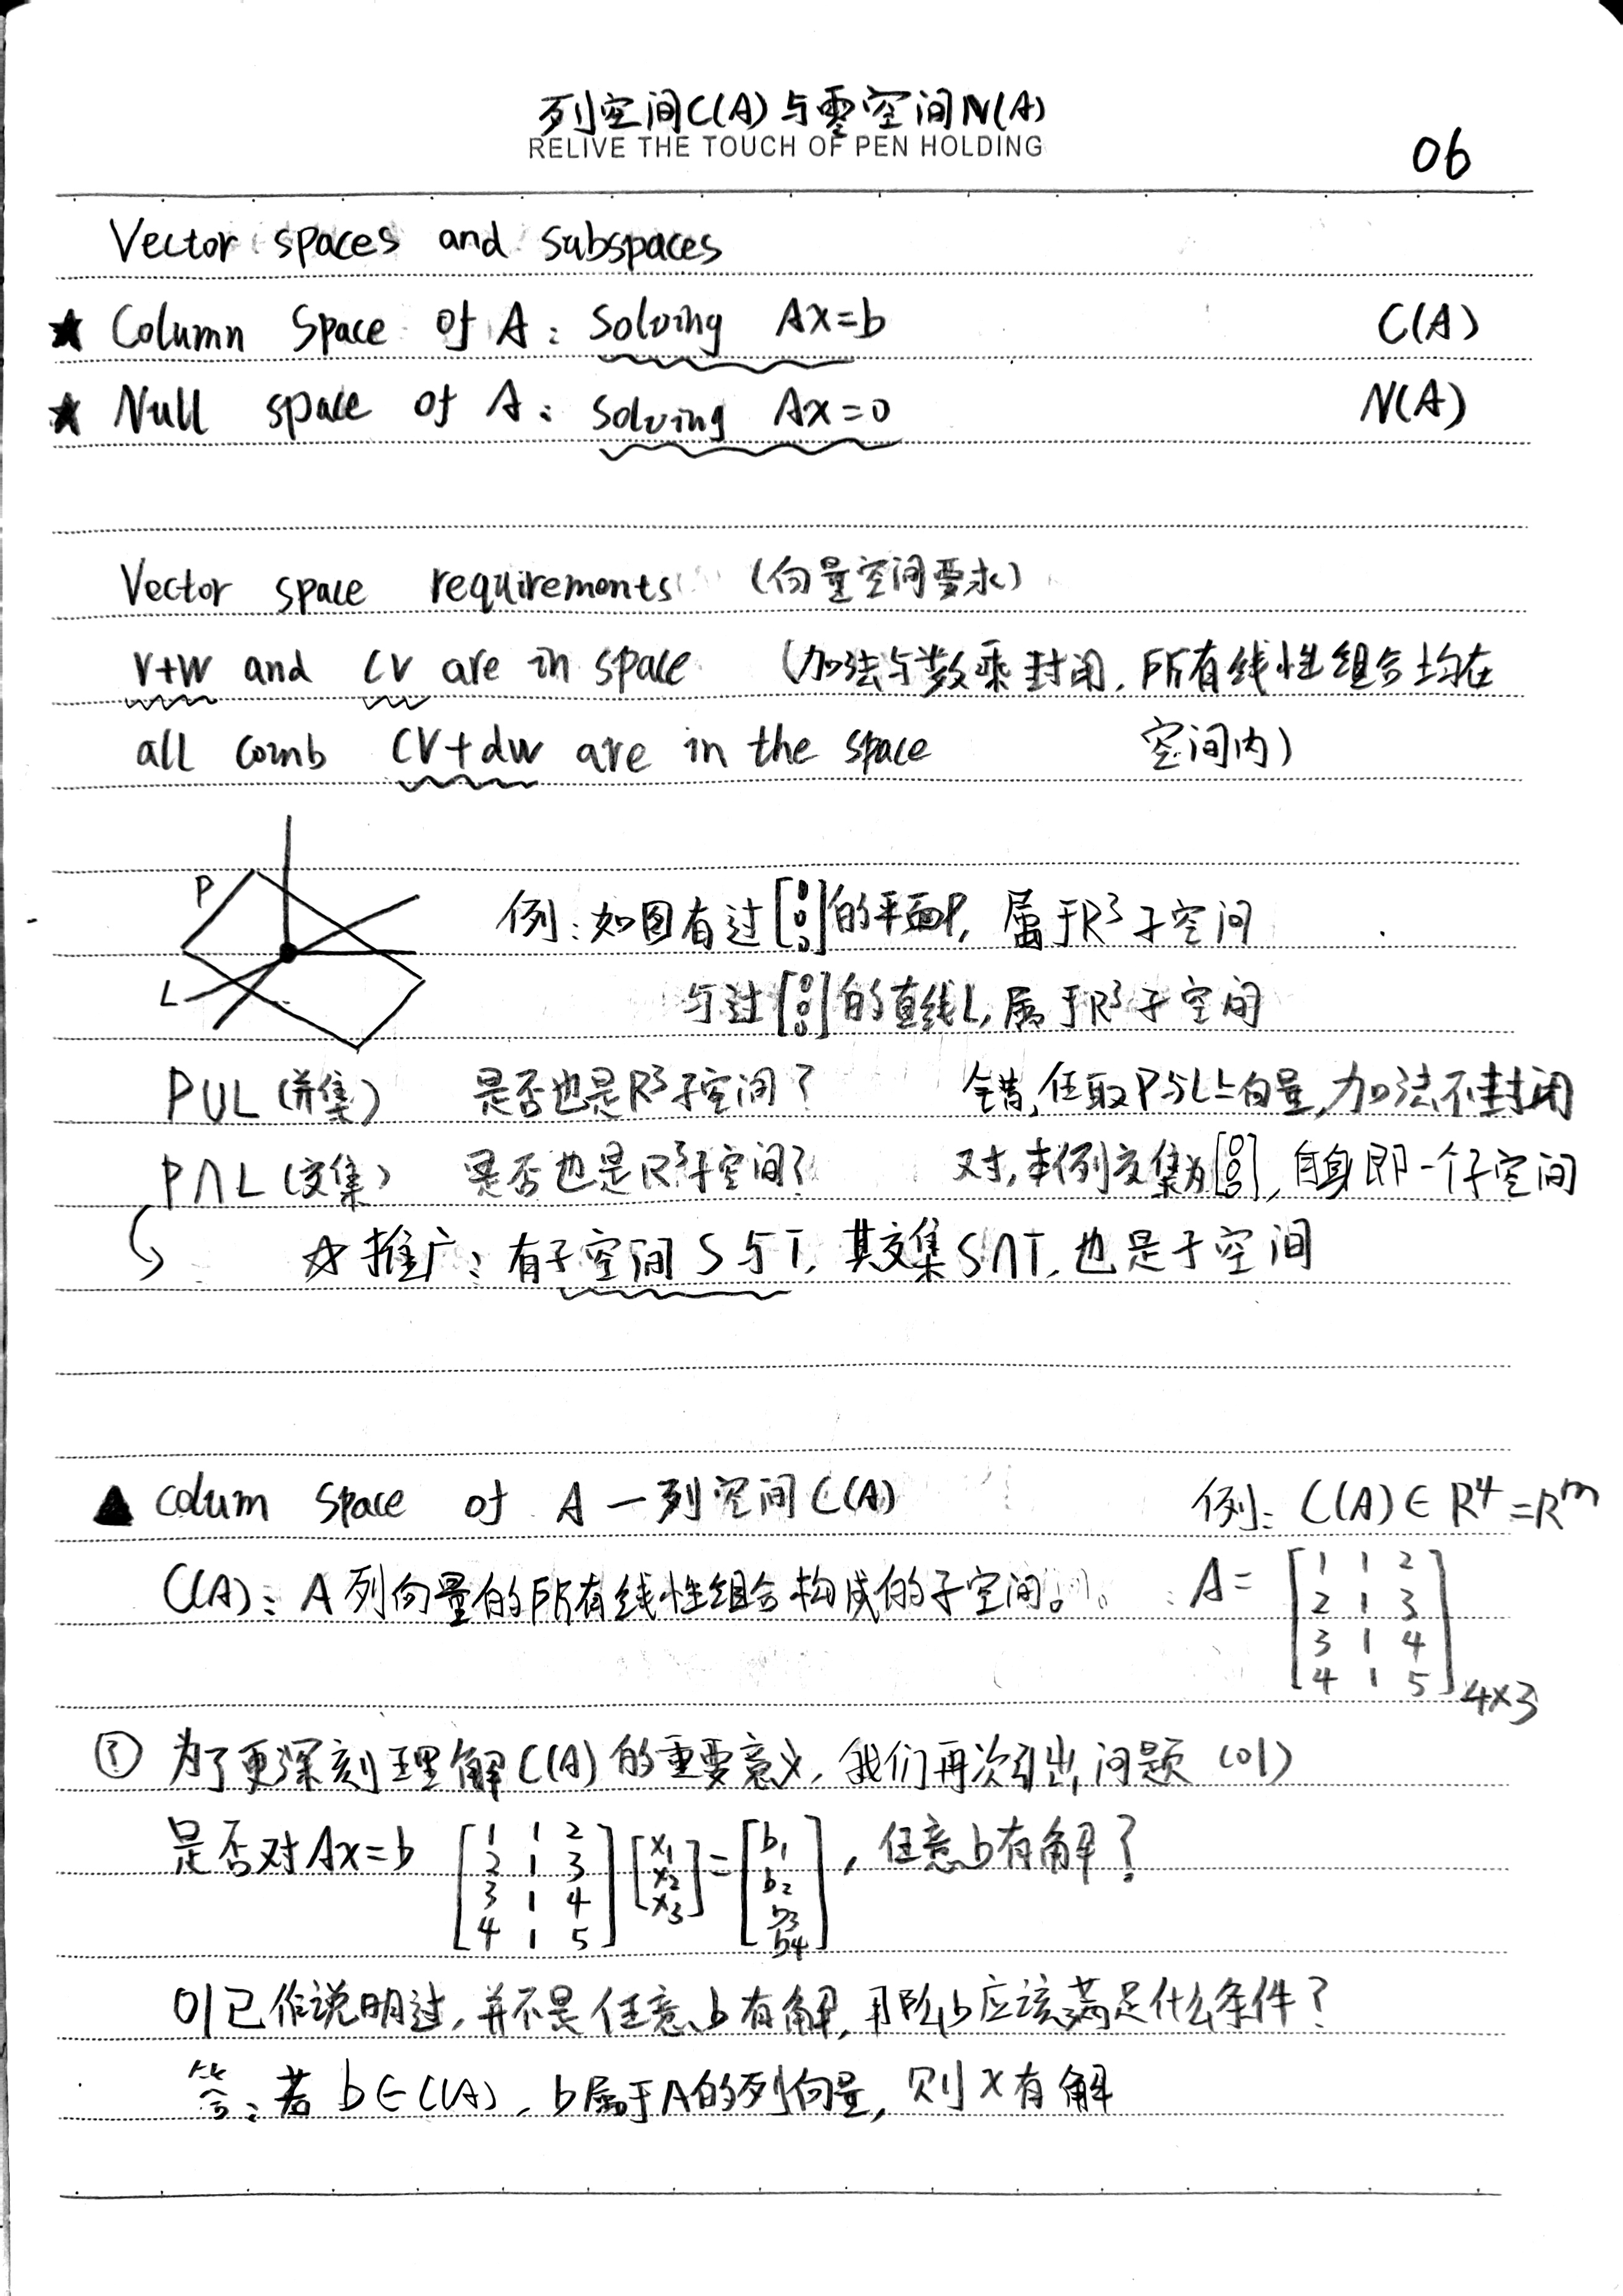 列空间C(A)与零空间N(A)
RELIVE THE TOUCH OF PEN HOLDING
06
Vector spaces and subspaces
★ Column Space of A: Solving Ax=b C(A)
★ Null space of A: Solving Ax=0 N(A)
Vector space requirements (向量空间要求)
v+w and cv are in space (加法与数乘封闭,所有线性组合均在
all comb cv+dw are in the space 空间内)
P
L
例:如图有过[0 0 0]的平面P, 属于R³子空间
与过[0 0 0]的直线L,属于R³子空间
P∪L (并集) 是否也是R³子空间? 错,任取P与L上向量,加法不封闭
P∩L (交集) 是否也是R³子空间? 对,本例交集为[0 0 0],自身即一个子空间
☆推广:有子空间S与T, 其交集S∩T,也是子空间
▲ colum space of A — 列空间C(A) 例: C(A)∈R⁴=Rᵐ
C(A): A列向量的所有线性组合构成的子空间。 A=
1 1 2
2 1 3
3 1 4
4 1 5
4×3
① 为了更深刻理解C(A)的重要意义,我们再次引出问题(01)
是否对Ax=b [1 1 2; 2 1 3; 3 1 4; 4 1 5] [x₁ x₂ x₃] = [b₁ b₂ b₃ b₄], 任意b有解?
01已作说明过,并不是任意b有解,那么b应该满足什么条件?
答:若b∈C(A), b属于A的列向量,则x有解